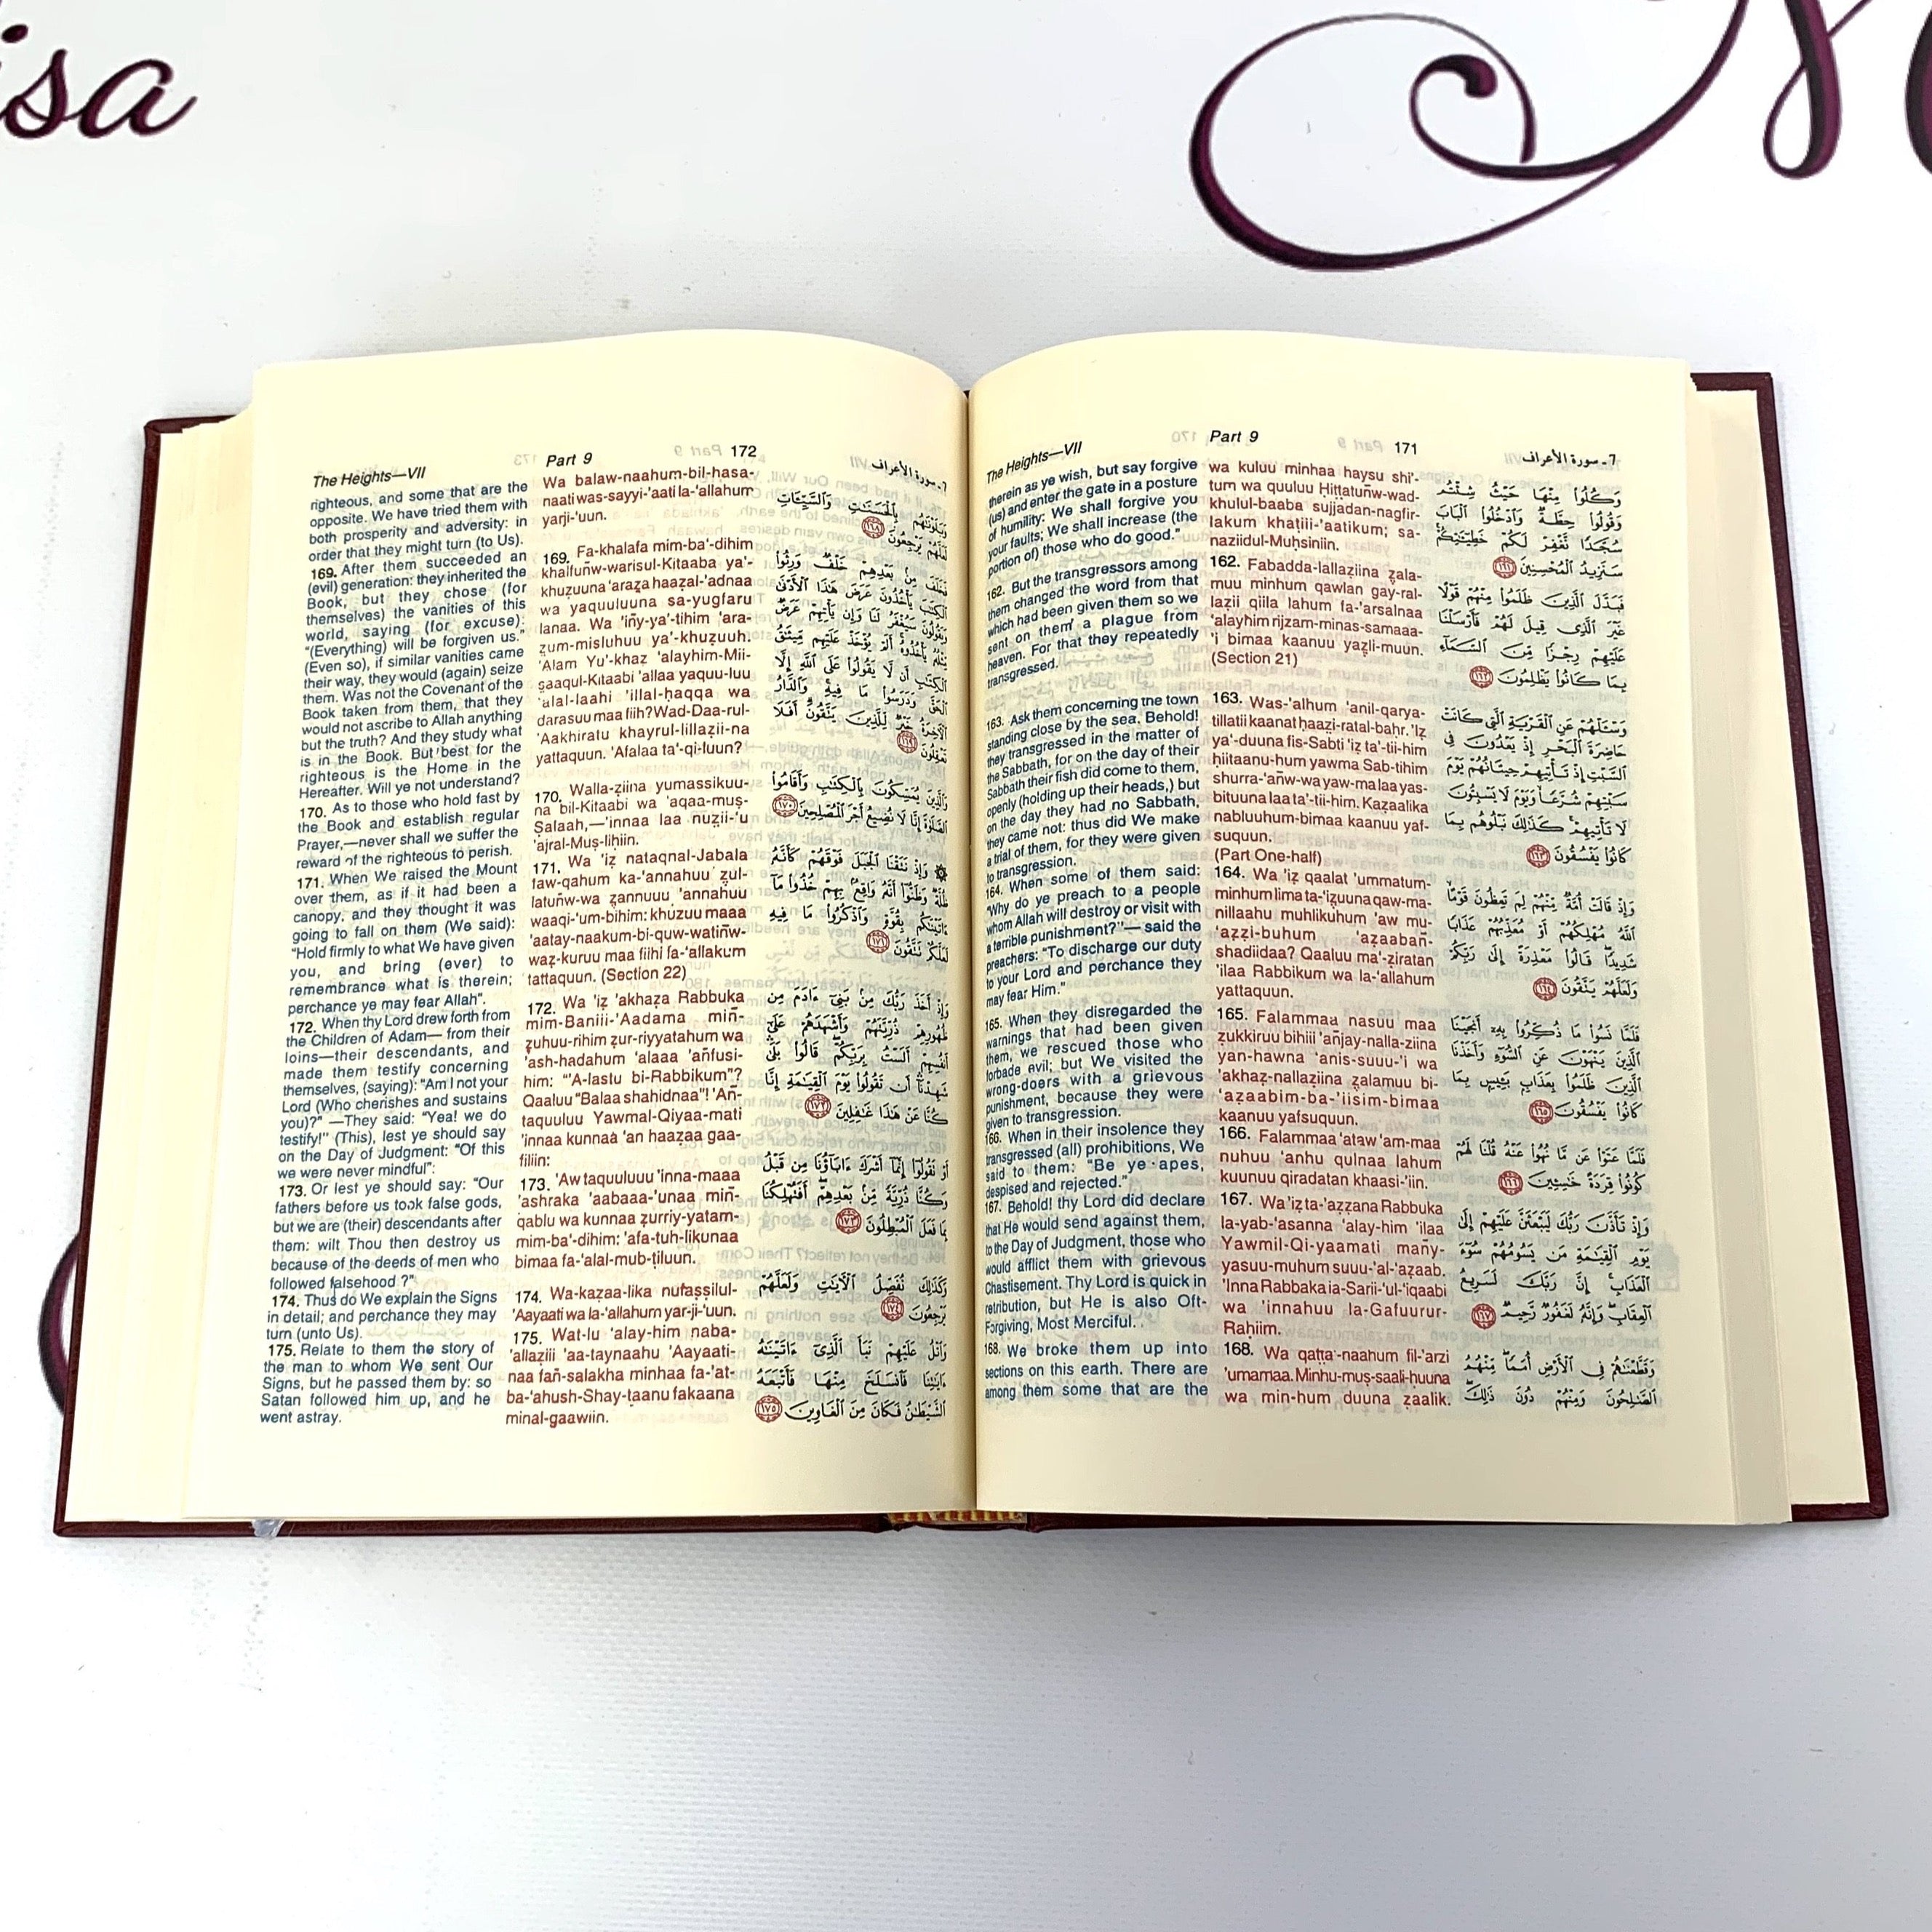 isa
The Heights—VII
Part 9
171
7 - سورة الأعراف
therein as ye wish, but say forgive
(us) and enter the gate in a posture
of humility: We shall forgive you
your faults; We shall increase (the
portion of) those who do good."
162. But the transgressors among
them changed the word from that
which had been given them so we
sent on them a plague from
heaven. For that they repeatedly
transgressed.
163. Ask them concerning the town
standing close by the sea. Behold!
they transgressed in the matter of
the Sabbath, for on the day of their
Sabbath their fish did come to them,
openly (holding up their heads,) but
on the day they had no Sabbath,
they came not: thus did We make
a trial of them, for they were given
to transgression.
164. When some of them said:
"Why do ye preach to a people
whom Allah will destroy or visit with
a terrible punishment?"— said the
preachers: "To discharge our duty
to your Lord and perchance they
may fear Him."
165. When they disregarded the
warnings that had been given
them, we rescued those who
forbade evil; but We visited the
wrong-doers with a grievous
punishment, because they were
given to transgression.
166. When in their insolence they
transgressed (all) prohibitions, We
said to them: "Be ye apes,
despised and rejected."
167. Behold! thy Lord did declare
that He would send against them,
to the Day of Judgment, those who
would afflict them with grievous
Chastisement. Thy Lord is quick in
retribution, but He is also Oft-
Forgiving, Most Merciful.
168. We broke them up into
sections on this earth. There are
among them some that are the
wa kuluu minhaa haysu shi'-
tum wa quuluu Ḥiṭṭatuñw-wad-
khulul-baaba sujjadan-nagfir-
lakum khaṭiii-'aatikum; sa-
naziidul-Muḥsiniin.
162. Fabadda-lallaẓiina ẓala-
muu minhum qawlan gay-ral-
laẓii qiila lahum fa-'arsalnaa
'alayhim rijzam-minas-samaaa-
'i bimaa kaanuu yaẓli-muun.
(Section 21)
163. Was-'alhum 'anil-qarya-
tillatii kaanat ḥaaẓi-ratal-baḥr. 'Iẓ
ya'-duuna fis-Sabti 'iẓ ta'-tii-him
ḥiitaanu-hum yawma Sab-tihim
shurra-'añw-wa yaw-ma laa yas-
bituuna laa ta'-tii-him. Kaẓaalika
nabluuhum-bimaa kaanuu yaf-
suquun.
(Part One-half)
164. Wa 'iẓ qaalat 'ummatum-
minhum lima ta-'iẓuuna qaw-ma-
nillaahu muhlikuhum 'aw mu-
'aẓẓi-buhum 'aẓaabañ-
shadiidaa? Qaaluu ma'-ẓiratan
'ilaa Rabbikum wa la-'allahum
yattaquun.
165. Falammaa nasuu maa
ẓukkiruu bihiii 'añjay-nalla-ziina
yan-hawna 'anis-suuu-'i wa
'akhaẓ-nallaẓiina ẓalamuu bi-
'aẓaabim-ba-'iisim-bimaa
kaanuu yafsuquun.
166. Falammaa 'ataw 'am-maa
nuhuu 'anhu qulnaa lahum
kuunuu qiradatan khaasi-'iin.
167. Wa 'iẓ ta-'aẓẓana Rabbuka
la-yab-'asanna 'alay-him 'ilaa
Yawmil-Qi-yaamati mañy-
yasuu-muhum suuu-'al-'aẓaab.
'Inna Rabbaka la-Sarii-'ul-'iqaabi
wa 'innahuu la-Gafuurur-
Raḥiim.
168. Wa qaṭṭa-naahum fil-'arzi
'umamaa. Minhu-muṣ-saali-huuna
wa min-hum duuna ẓaalik.
وَكُلُوا۟ مِنْهَا حَيْثُ شِئْتُمْ
وَقُولُوا۟ حِطَّةٌ وَٱدْخُلُوا۟ ٱلْبَابَ
سُجَّدًا نَّغْفِرْ لَكُمْ خَطِيٓـَٔـٰتِكُمْ
سَنَزِيدُ ٱلْمُحْسِنِينَ ١٦١
فَبَدَّلَ ٱلَّذِينَ ظَلَمُوا۟ مِنْهُمْ قَوْلًا
غَيْرَ ٱلَّذِى قِيلَ لَهُمْ فَأَرْسَلْنَا
عَلَيْهِمْ رِجْزًا مِّنَ ٱلسَّمَآءِ
بِمَا كَانُوا۟ يَظْلِمُونَ ١٦٢
وَسْـَٔلْهُمْ عَنِ ٱلْقَرْيَةِ ٱلَّتِى كَانَتْ
حَاضِرَةَ ٱلْبَحْرِ إِذْ يَعْدُونَ فِى
ٱلسَّبْتِ إِذْ تَأْتِيهِمْ حِيتَانُهُمْ يَوْمَ
سَبْتِهِمْ شُرَّعًا وَيَوْمَ لَا يَسْبِتُونَ
لَا تَأْتِيهِمْ كَذَٰلِكَ نَبْلُوهُم بِمَا
كَانُوا۟ يَفْسُقُونَ ١٦٣
وَإِذْ قَالَتْ أُمَّةٌ مِّنْهُمْ لِمَ تَعِظُونَ قَوْمًا
ٱللَّهُ مُهْلِكُهُمْ أَوْ مُعَذِّبُهُمْ عَذَابًا
شَدِيدًا قَالُوا۟ مَعْذِرَةً إِلَىٰ رَبِّكُمْ
وَلَعَلَّهُمْ يَتَّقُونَ ١٦٤
فَلَمَّا نَسُوا۟ مَا ذُكِّرُوا۟ بِهِۦٓ أَنجَيْنَا
ٱلَّذِينَ يَنْهَوْنَ عَنِ ٱلسُّوٓءِ وَأَخَذْنَا
ٱلَّذِينَ ظَلَمُوا۟ بِعَذَابٍۭ بَـِٔيسٍۭ بِمَا
كَانُوا۟ يَفْسُقُونَ ١٦٥
فَلَمَّا عَتَوْا۟ عَن مَّا نُهُوا۟ عَنْهُ قُلْنَا لَهُمْ
كُونُوا۟ قِرَدَةً خَـٰسِـِٔينَ ١٦٦
وَإِذْ تَأَذَّنَ رَبُّكَ لَيَبْعَثَنَّ عَلَيْهِمْ إِلَىٰ
يَوْمِ ٱلْقِيَـٰمَةِ مَن يَسُومُهُمْ سُوٓءَ
ٱلْعَذَابِ إِنَّ رَبَّكَ لَسَرِيعُ
ٱلْعِقَابِ وَإِنَّهُۥ لَغَفُورٌ رَّحِيمٌ ١٦٧
وَقَطَّعْنَـٰهُمْ فِى ٱلْأَرْضِ أُمَمًا مِّنْهُمُ
ٱلصَّـٰلِحُونَ وَمِنْهُمْ دُونَ ذَٰلِكَ
The Heights—VII
Part 9
172
7 - سورة الأعراف
righteous, and some that are the
opposite. We have tried them with
both prosperity and adversity: in
order that they might turn (to Us).
169. After them succeeded an
(evil) generation: they inherited the
Book, but they chose (for
themselves) the vanities of this
world, saying (for excuse):
"(Everything) will be forgiven us."
(Even so), if similar vanities came
their way, they would (again) seize
them. Was not the Covenant of the
Book taken from them, that they
would not ascribe to Allah anything
but the truth? And they study what
is in the Book. But best for the
righteous is the Home in the
Hereafter. Will ye not understand?
170. As to those who hold fast by
the Book and establish regular
Prayer,—never shall we suffer the
reward of the righteous to perish.
171. When We raised the Mount
over them, as if it had been a
canopy, and they thought it was
going to fall on them (We said):
"Hold firmly to what We have given
you, and bring (ever) to
remembrance what is therein;
perchance ye may fear Allah".
172. When thy Lord drew forth from
the Children of Adam— from their
loins—their descendants, and
made them testify concerning
themselves, (saying): "Am I not your
Lord (Who cherishes and sustains
you)?" —They said: "Yea! we do
testify!" (This), lest ye should say
on the Day of Judgment: "Of this
we were never mindful":
173. Or lest ye should say: "Our
fathers before us took false gods,
but we are (their) descendants after
them: wilt Thou then destroy us
because of the deeds of men who
followed falsehood ?"
174. Thus do We explain the Signs
in detail; and perchance they may
turn (unto Us).
175. Relate to them the story of
the man to whom We sent Our
Signs, but he passed them by: so
Satan followed him up, and he
went astray.
Wa balaw-naahum-bil-hasa-
naati was-sayyi-'aati la-'allahum
yarji-'uun.
169. Fa-khalafa mim-ba'-dihim
khalfuñw-warisul-Kitaaba ya'-
khuẓuuna 'araẓa haaẓal-'adnaa
wa yaquuluuna sa-yugfaru
lanaa. Wa 'iñy-ya'-tihim 'ara-
ẓum-misluhuu ya'-khuẓuuh.
'Alam Yu'-khaẓ 'alayhim-Mii-
saaqul-Kitaabi 'allaa yaquu-luu
'alal-laahi 'illal-ḥaqqa wa
darasuu maa fiih? Wad-Daa-rul-
'Aakhiratu khayrul-lillaẓii-na
yattaquun. 'Afalaa ta'-qi-luun?
170. Walla-ẓiina yumassikuu-
na bil-Kitaabi wa 'aqaa-muṣ-
Ṣalaah,—'innaa laa nuẓii-'u
'ajral-Muṣ-liḥiin.
171. Wa 'iẓ nataqnal-Jabala
faw-qahum ka-'annahuu ẓul-
latuñw-wa ẓannuuu 'annahuu
waaqi-'um-bihim: khuẓuu maaa
'aatay-naakum bi-quw-watiñw-
waẓ-kuruu maa fiihi la-'allakum
tattaquun. (Section 22)
172. Wa 'iẓ 'akhaẓa Rabbuka
mim-Baniii-'Aadama miñ-
ẓuhuu-rihim ẓur-riyyatahum wa
'ash-hadahum 'alaaa 'añfusi-
him: "'A-lastu bi-Rabbikum"?
Qaaluu "Balaa shahidnaa"! 'Añ-
taquuluu Yawmal-Qiyaa-mati
'innaa kunnaa 'an haaẓaa gaa-
filiin:
173. 'Aw taquuluuu 'inna-maaa
'ashraka 'aabaaa-'unaa miñ-
qablu wa kunnaa ẓurriy-yatam-
mim-ba'-dihim: 'afa-tuh-likunaa
bimaa fa-'alal-mub-ṭiluun.
174. Wa-kaẓaa-lika nufaṣṣilul-
'Aayaati wa la-'allahum yar-ji-'uun.
175. Wat-lu 'alay-him naba-
'allaẓiii 'aa-taynaahu 'Aayaati-
naa fañ-salakha minhaa fa-'at-
ba-'ahush-Shay-ṭaanu fakaana
minal-gaawiin.
وَبَلَوْنَـٰهُم بِٱلْحَسَنَـٰتِ وَٱلسَّيِّـَٔاتِ
لَعَلَّهُمْ يَرْجِعُونَ ١٦٨
فَخَلَفَ مِنۢ بَعْدِهِمْ خَلْفٌ وَرِثُوا۟
ٱلْكِتَـٰبَ يَأْخُذُونَ عَرَضَ هَـٰذَا ٱلْأَدْنَىٰ
وَيَقُولُونَ سَيُغْفَرُ لَنَا وَإِن يَأْتِهِمْ عَرَضٌ
مِّثْلُهُۥ يَأْخُذُوهُ أَلَمْ يُؤْخَذْ عَلَيْهِم مِّيثَـٰقُ
ٱلْكِتَـٰبِ أَن لَّا يَقُولُوا۟ عَلَى ٱللَّهِ إِلَّا
ٱلْحَقَّ وَدَرَسُوا۟ مَا فِيهِ وَٱلدَّارُ
ٱلْـَٔاخِرَةُ خَيْرٌ لِّلَّذِينَ يَتَّقُونَ أَفَلَا
تَعْقِلُونَ ١٦٩
وَٱلَّذِينَ يُمَسِّكُونَ بِٱلْكِتَـٰبِ وَأَقَامُوا۟
ٱلصَّلَوٰةَ إِنَّا لَا نُضِيعُ أَجْرَ ٱلْمُصْلِحِينَ ١٧٠
وَإِذْ نَتَقْنَا ٱلْجَبَلَ فَوْقَهُمْ كَأَنَّهُۥ
ظُلَّةٌ وَظَنُّوٓا۟ أَنَّهُۥ وَاقِعٌۢ بِهِمْ خُذُوا۟ مَآ
ءَاتَيْنَـٰكُم بِقُوَّةٍ وَٱذْكُرُوا۟ مَا فِيهِ
لَعَلَّكُمْ تَتَّقُونَ ١٧١
وَإِذْ أَخَذَ رَبُّكَ مِنۢ بَنِىٓ ءَادَمَ مِن
ظُهُورِهِمْ ذُرِّيَّتَهُمْ وَأَشْهَدَهُمْ عَلَىٰٓ
أَنفُسِهِمْ أَلَسْتُ بِرَبِّكُمْ قَالُوا۟ بَلَىٰ
شَهِدْنَآ أَن تَقُولُوا۟ يَوْمَ ٱلْقِيَـٰمَةِ إِنَّا
كُنَّا عَنْ هَـٰذَا غَـٰفِلِينَ ١٧٢
أَوْ تَقُولُوٓا۟ إِنَّمَآ أَشْرَكَ ءَابَآؤُنَا مِن قَبْلُ
وَكُنَّا ذُرِّيَّةً مِّنۢ بَعْدِهِمْ أَفَتُهْلِكُنَا
بِمَا فَعَلَ ٱلْمُبْطِلُونَ ١٧٣
وَكَذَٰلِكَ نُفَصِّلُ ٱلْـَٔايَـٰتِ وَلَعَلَّهُمْ
يَرْجِعُونَ ١٧٤
وَٱتْلُ عَلَيْهِمْ نَبَأَ ٱلَّذِىٓ ءَاتَيْنَـٰهُ
ءَايَـٰتِنَا فَٱنسَلَخَ مِنْهَا فَأَتْبَعَهُ
ٱلشَّيْطَـٰنُ فَكَانَ مِنَ ٱلْغَاوِينَ ١٧٥